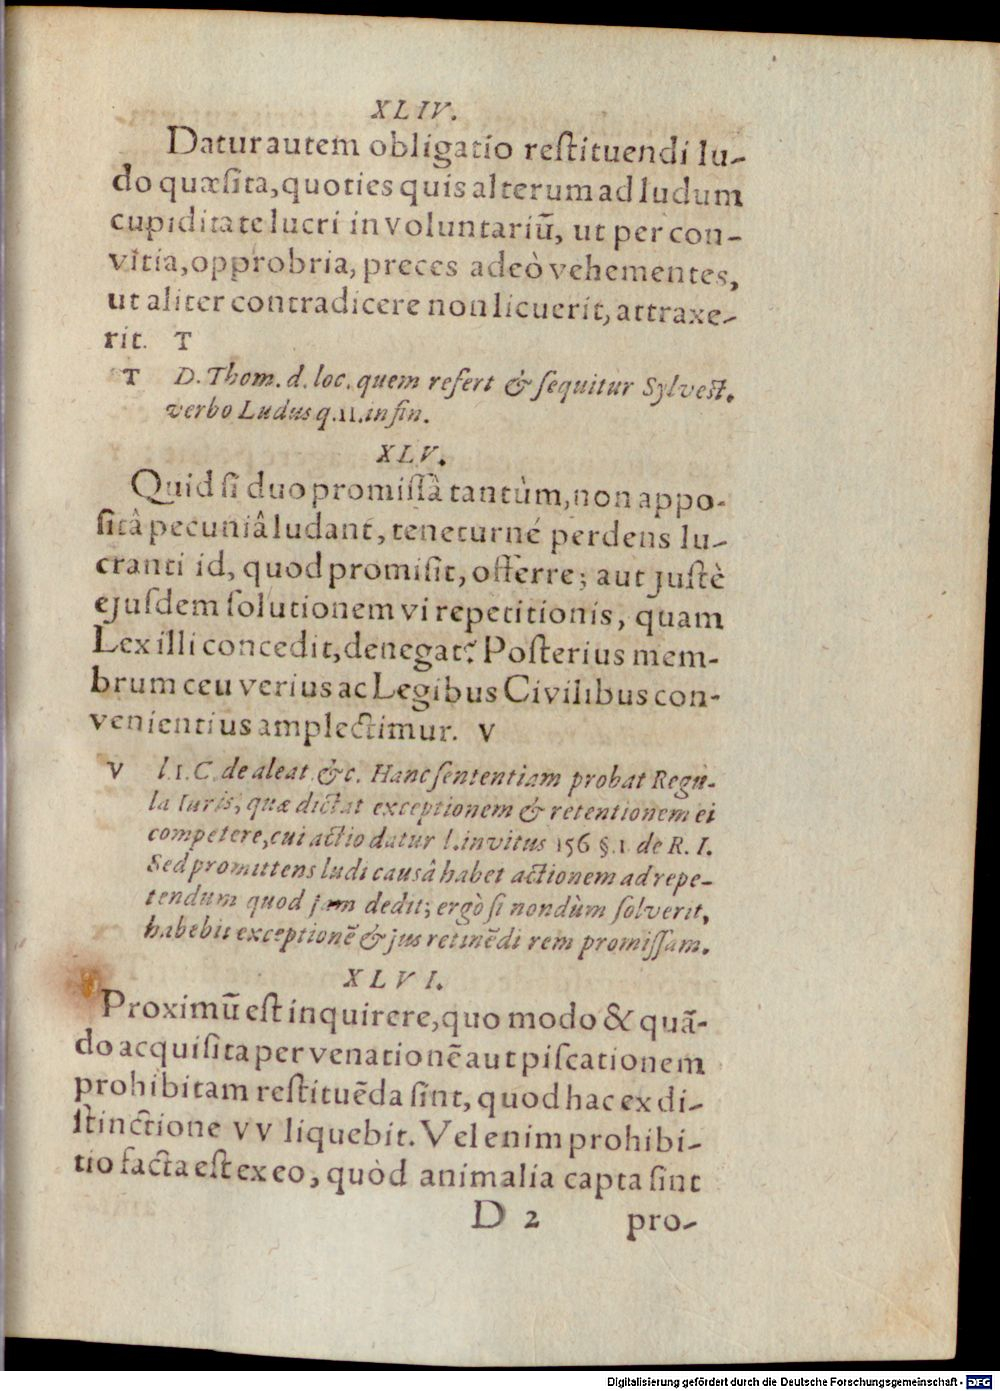 XLIV.
Datur autem obligatio reſtituendi lu-
do quæſita, quoties quis alterum ad ludum
cupiditate lucri involuntariũ, ut per con-
vitia, opprobria, preces adeò vehementes,
ut aliter contradicere non licuerit, attraxe-
rit. T
T D. Thom. d. loc. quem refert & ſequitur Sylveſt.
verbo Ludus q. 11. in fin.
XLV.
Quid ſi duo promiſſâ tantùm, non appo-
ſitâ pecuniâ ludant, teneturné perdens lu-
cranti id, quod promiſit, offerre; aut juſtè
ejuſdem ſolutionem vi repetitionis, quam
Lex illi concedit, denegat? Poſterius mem-
brum ceu verius ac Legibus Civilibus con-
venientius amplectimur. V
V l. 1. C. de aleat. &c. Hanc ſententiam probat Regu-
la Iuris, quæ dictat exceptionem & retentionem ei
competere, cui actio datur l. invitus 156 §. 1 de R. I.
Sed promittens ludi causâ habet actionem ad repe-
tendum quod jam dedit; ergò ſi nondùm ſolverit,
habebit exceptionẽ & jus retinẽdi rem promiſſam.
XLVI.
Proximũ eſt inquirere, quo modo & quã-
do acquiſita per venationẽ aut piſcationem
prohibitam reſtituẽda ſint, quod hac ex di-
ſtinctione VV liquebit. Vel enim prohibi-
tio facta eſt ex eo, quòd animalia capta ſint
D 2 pro-
Digitalisierung gefördert durch die Deutsche Forschungsgemeinschaft - DFG